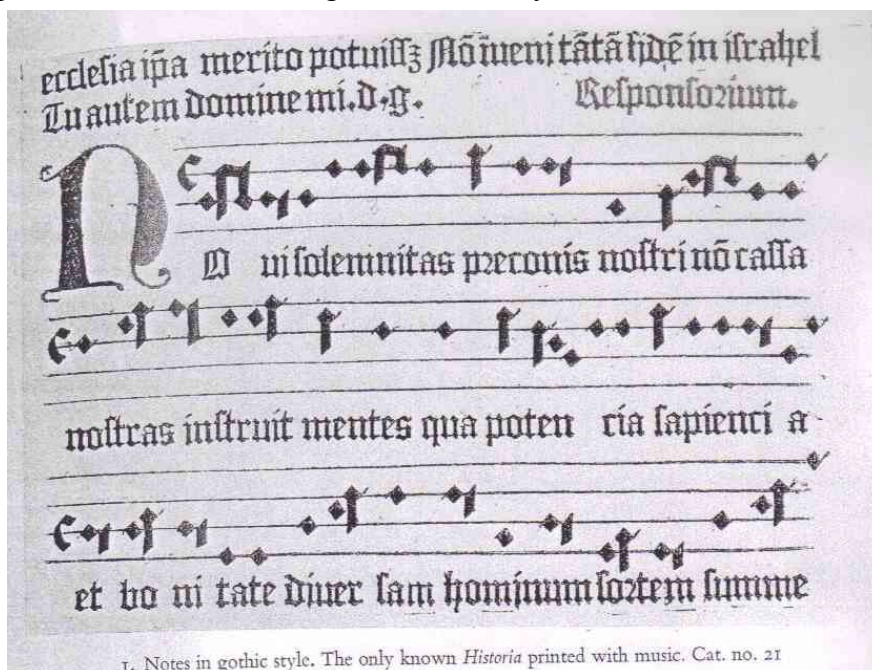 ecclesia ip̄a merito potuissꝫ Nō īueni tātā fidē in israhel
Tu autem domine mi.d.g. Responsorium.
N
O ui solemnitas preconis nostri nō cassa
nostras instruit mentes qua poten cia sapienci a
et bo ni tate diuer sam hominum sortem summe
1. Notes in gothic style. The only known Historia printed with music. Cat. no. 21